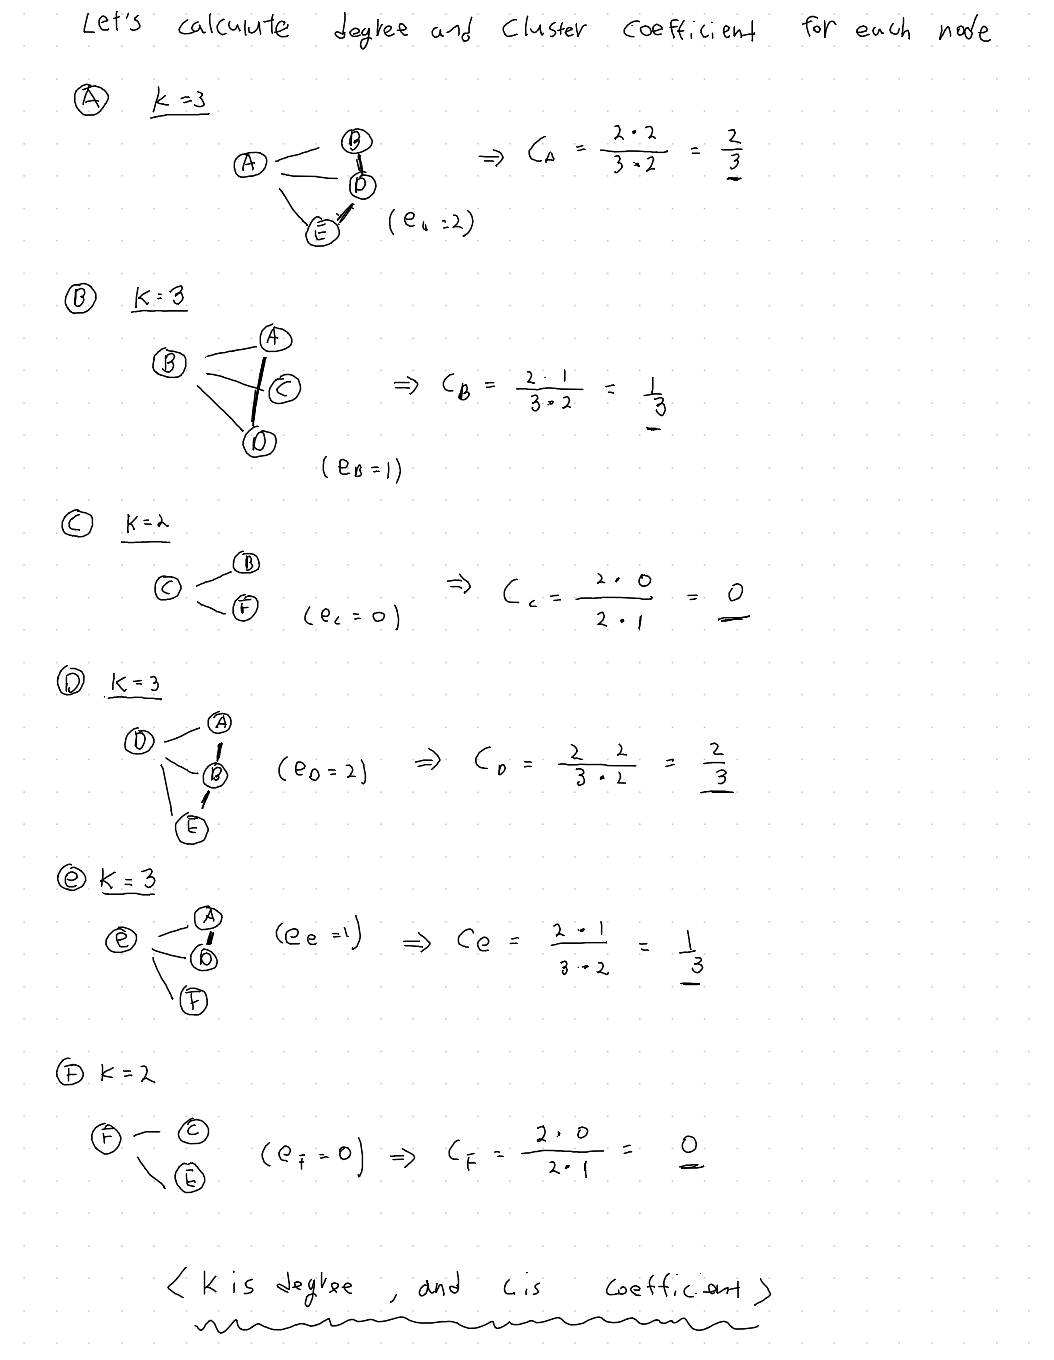 Let's calculate degree and Cluster Coefficient for each node
Ⓐ k=3
A B D E
(e_A=2)
⇒ C_A = 2·2/3·2 = 2/3
Ⓑ K=3
B A C D
(e_B=1)
⇒ C_B = 2·1/3·2 = 1/3
Ⓒ K=2
C B F
(e_c=0)
⇒ C_c = 2·0/2·1 = 0
Ⓓ K=3
D A B E
(e_D=2) ⇒ C_D = 2 2/3·2 = 2/3
ⓔ K=3
e A D F
(e_e=1) ⇒ C_e = 2·1/3·2 = 1/3
Ⓕ K=2
F C E
(e_F=0) ⇒ C_F = 2·0/2·1 = 0
<K is degree, and C is Coefficient>